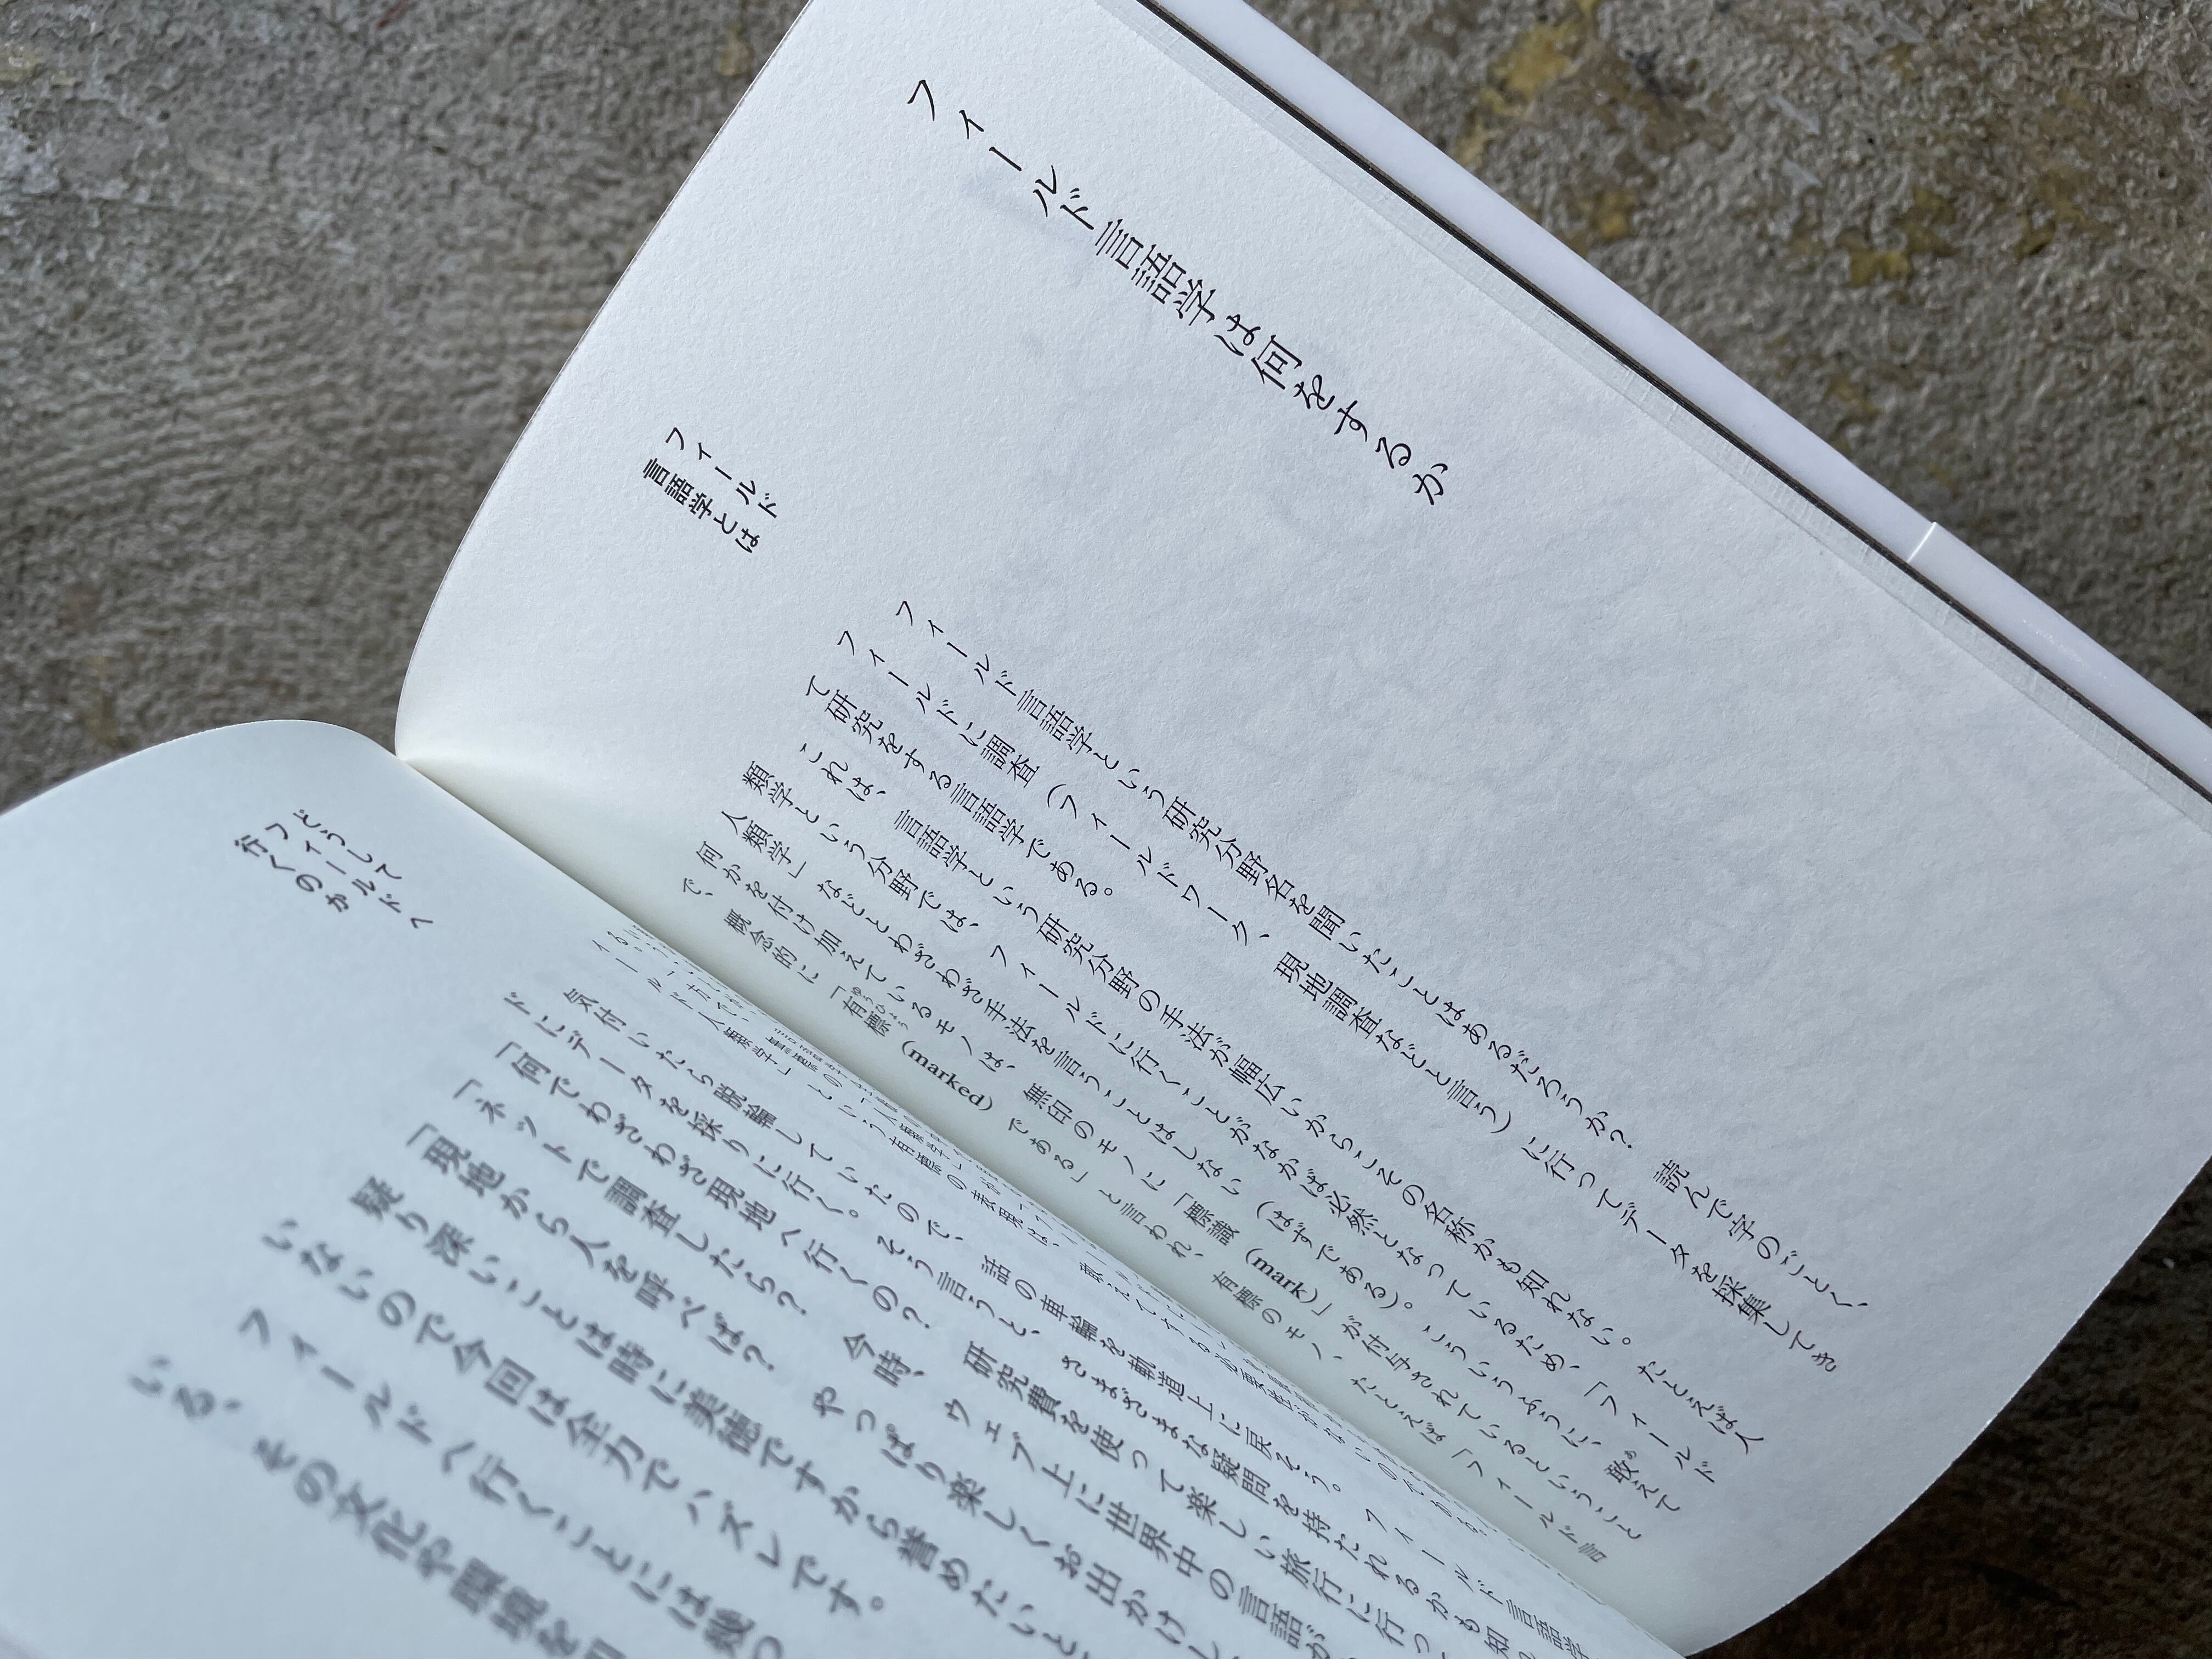 フィールド言語学は何をするか
フィールド
言語学とは
フィールド言語学という研究分野名を聞いたことはあるだろうか？　読んで字のごとく、
フィールドに調査（フィールドワーク、現地調査などと言う）に行ってデータを採集してき
て研究をする言語学である。
これは、言語学という研究分野の手法が幅広いからこその名称かも知れない。たとえば人
類学という分野では、フィールドに行くことがなかば必然となっているため、「フィールド
人類学」などとわざわざ手法を言うことはしない（はずである）。こういうふうに、敢えて
何かを付け加えているモノは、無印のモノに「標識（mark）」が付与されているということ
で、概念的に「有標（marked）である」と言われ、有標のモノ、たとえば「フィールド言
ールド人類学」という有標の表現は、敢えてする必要性がないのである。
どうして
フィールドへ
行くのか
気付いたら脱輪していたので、話の車輪を軌道上に戻そう。フィールド言語学
ドにデータを採りに行く。そう言うと、さまざまな疑問を持たれるかも知
「何でわざわざ現地へ行くの？　研究費を使って楽しい旅行に行っ
「ネットで調査したら？　今時、ウェブ上に世界中の言語が
「現地から人を呼べば？　やっぱり楽しくお出かけし
疑り深いことは時に美徳ですから誉めたいと
いないので今回は全力でハズレです。
フィールドへ行くことには幾つ
いる、その文化や環境を